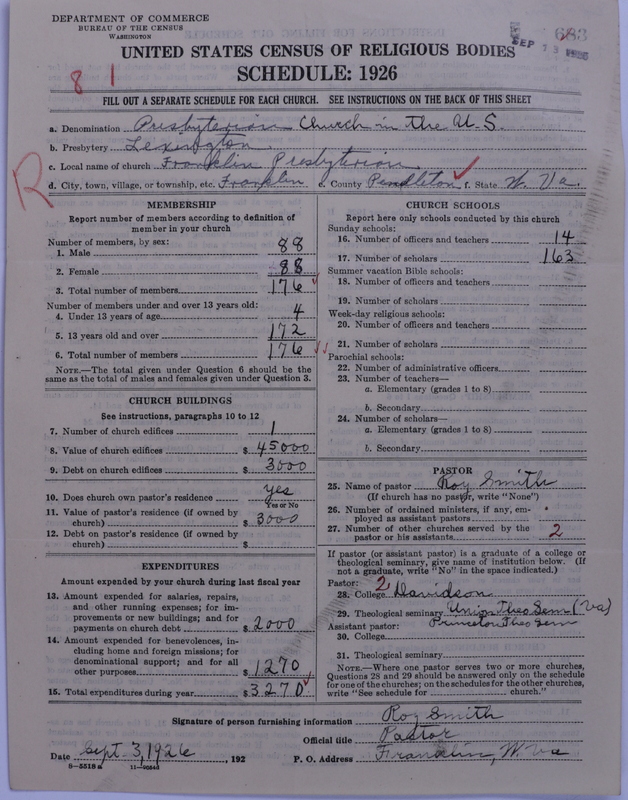 DEPARTMENT OF COMMERCE
BUREAU OF THE CENSUS
WASHINGTON
683
SEP 13 1926
UNITED STATES CENSUS OF RELIGIOUS BODIES
8 1
SCHEDULE: 1926
FILL OUT A SEPARATE SCHEDULE FOR EACH CHURCH. SEE INSTRUCTIONS ON THE BACK OF THIS SHEET
a. Denomination Presbyterian Church in the U.S.
b. Presbytery Lexington
c. Local name of church Franklin Presbyterian
R
d. City, town, village, or township, etc. Franklin e. County Pendleton f. State W. Va.
MEMBERSHIP
Report number of members according to definition of
member in your church
Number of members, by sex:
1. Male 88
2. Female 88
3. Total number of members 176
Number of members under and over 13 years old:
4. Under 13 years of age 4
5. 13 years old and over 172
6. Total number of members 176
NOTE.—The total given under Question 6 should be the
same as the total of males and females given under Question 3.
CHURCH BUILDINGS
See instructions, paragraphs 10 to 12
7. Number of church edifices 1
8. Value of church edifices $ 45000
9. Debt on church edifices $ 3000
10. Does church own pastor's residence yes
Yes or No
11. Value of pastor's residence (if owned by
church) $ 3000
12. Debt on pastor's residence (if owned by
church) $
EXPENDITURES
Amount expended by your church during last fiscal year
13. Amount expended for salaries, repairs,
and other running expenses; for im-
provements or new buildings; and for
payments on church debt $ 2000
14. Amount expended for benevolences, in-
cluding home and foreign missions; for
denominational support; and for all
other purposes $ 1270
15. Total expenditures during year $ 3270
CHURCH SCHOOLS
Report here only schools conducted by this church
Sunday schools:
16. Number of officers and teachers 14
17. Number of scholars 163
Summer vacation Bible schools:
18. Number of officers and teachers
19. Number of scholars
Week-day religious schools:
20. Number of officers and teachers
21. Number of scholars
Parochial schools:
22. Number of administrative officers
23. Number of teachers—
a. Elementary (grades 1 to 8)
b. Secondary
24. Number of scholars—
a. Elementary (grades 1 to 8)
b. Secondary
PASTOR
25. Name of pastor Roy Smith
(If church has no pastor, write "None")
26. Number of ordained ministers, if any, em-
ployed as assistant pastors
27. Number of other churches served by the
pastor or his assistants 2
If pastor (or assistant pastor) is a graduate of a college or
theological seminary, give name of institution below. (If
not a graduate, write "No" in the space indicated.)
Pastor: 2
28. College Davidson
29. Theological seminary Union Theo Sem (Va)
Assistant pastor: Princeton Theo Sem
30. College
31. Theological seminary
NOTE.—Where one pastor serves two or more churches,
Questions 28 and 29 should be answered only on the schedule
for one of the churches; on the schedules for the other churches,
write "See schedule for church."
Signature of person furnishing information Roy Smith
Official title Pastor
Date Sept 3, 1926, 192 P. O. Address Franklin, W. Va
8—5518a